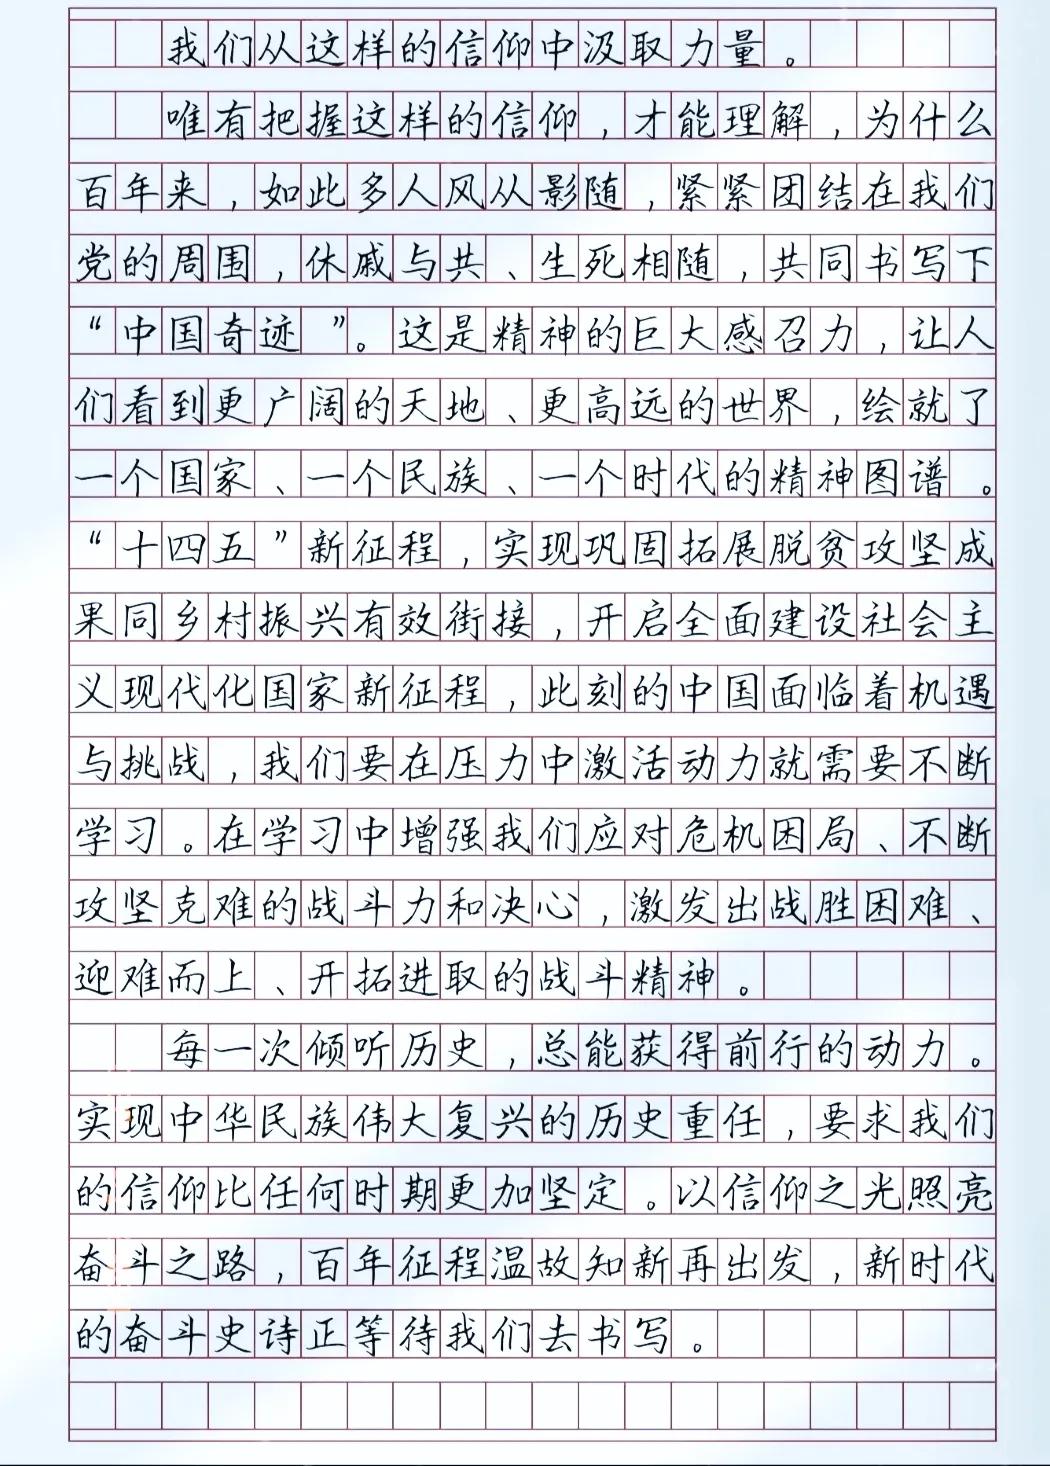 我们从这样的信仰中汲取力量。
唯有把握这样的信仰，才能理解，为什么
百年来，如此多人风从影随，紧紧团结在我们
党的周围，休戚与共、生死相随，共同书写下
“中国奇迹”。这是精神的巨大感召力，让人
们看到更广阔的天地、更高远的世界，绘就了
一个国家、一个民族、一个时代的精神图谱。
“十四五”新征程，实现巩固拓展脱贫攻坚成
果同乡村振兴有效街接，开启全面建设社会主
义现代化国家新征程，此刻的中国面临着机遇
与挑战，我们要在压力中激活动力就需要不断
学习。在学习中增强我们应对危机困局、不断
攻坚克难的战斗力和决心，激发出战胜困难、
迎难而上、开拓进取的战斗精神。
每一次倾听历史，总能获得前行的动力。
实现中华民族伟大复兴的历史重任，要求我们
的信仰比任何时期更加坚定。以信仰之光照亮
奋斗之路，百年征程温故知新再出发，新时代
的奋斗史诗正等待我们去书写。